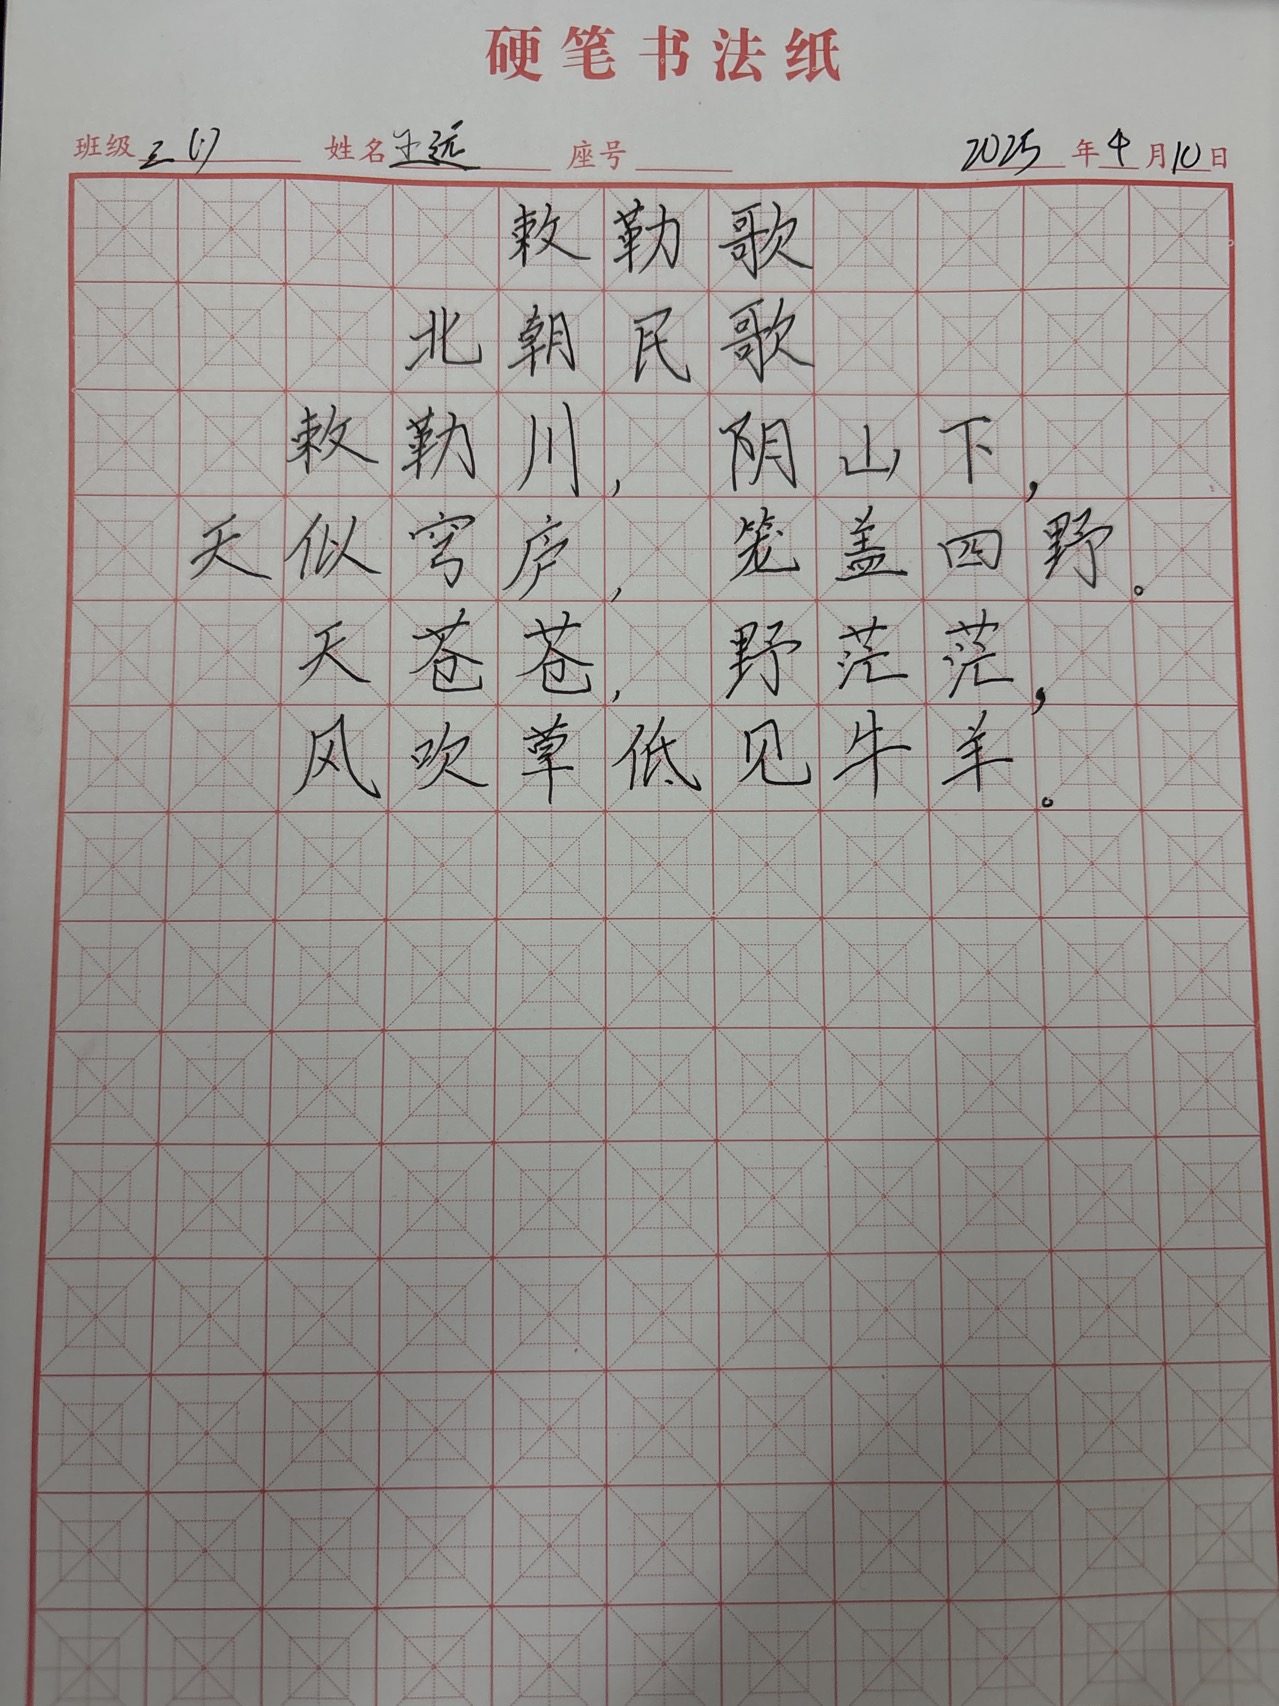 硬笔书法纸
班级 三(1) 姓名 王远 座号 2025年4月10日
敕勒歌
北朝民歌
敕勒川，阴山下，
天似穹庐，笼盖四野。
天苍苍，野茫茫，
风吹草低见牛羊。